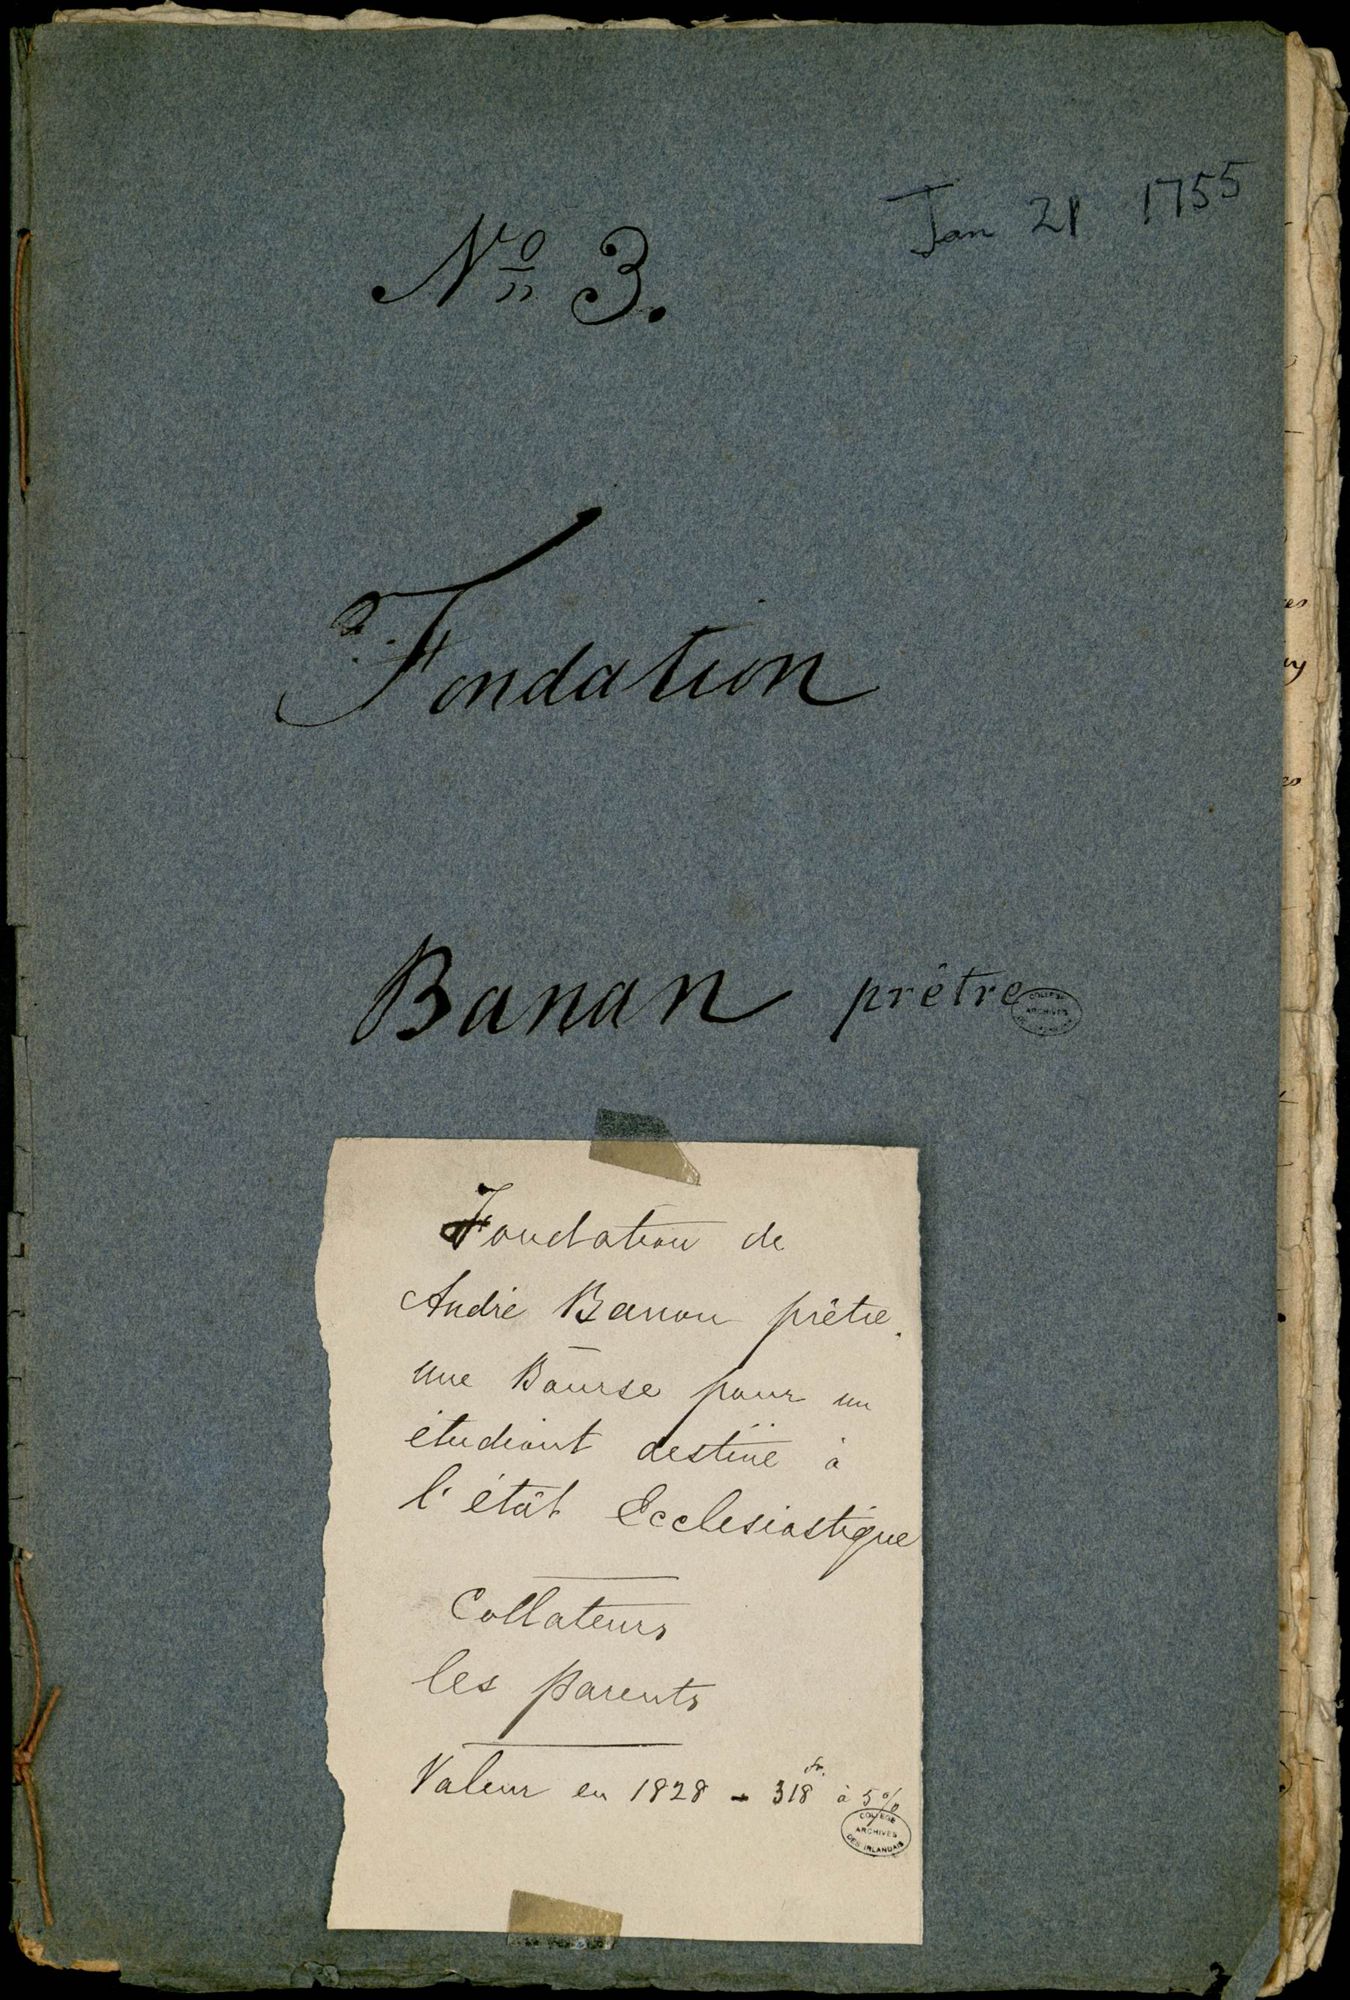 Jan 21 1755
Nº 3.
Fondation
Banan prêtre
COLLEGE
ARCHIVES
Fondation de
André Banon prêtre.
une Bourse pour un
étudiant destiné à
l'état Ecclesiastique
Collateurs
les parents
Valeur en 1828 - 318 fr. à 5%
COLLEGE
ARCHIVES
DES IRLANDAIS